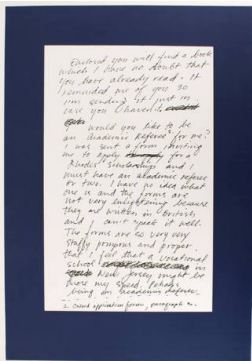 Enclosed you will find a book
which I have no doubt that
you have already read. It
reminded me of you so
I'm sending it just in
case you haven't.
Would you like to be
an academic referee for me?
I was sent a form inviting
me to apply for a
Rhodes Scholarship and I
must have an academic referee
or two. I have no idea what
one is and the forms are
not very enlightening because
they are written in British
and I can't speak it well.
The forms are so very very
stuffy pompous and proper
that I felt that a vocational
school in
New Jersey might be
more my speed. Perhaps
being an academic referee
2. Oxford application forms, paragraph